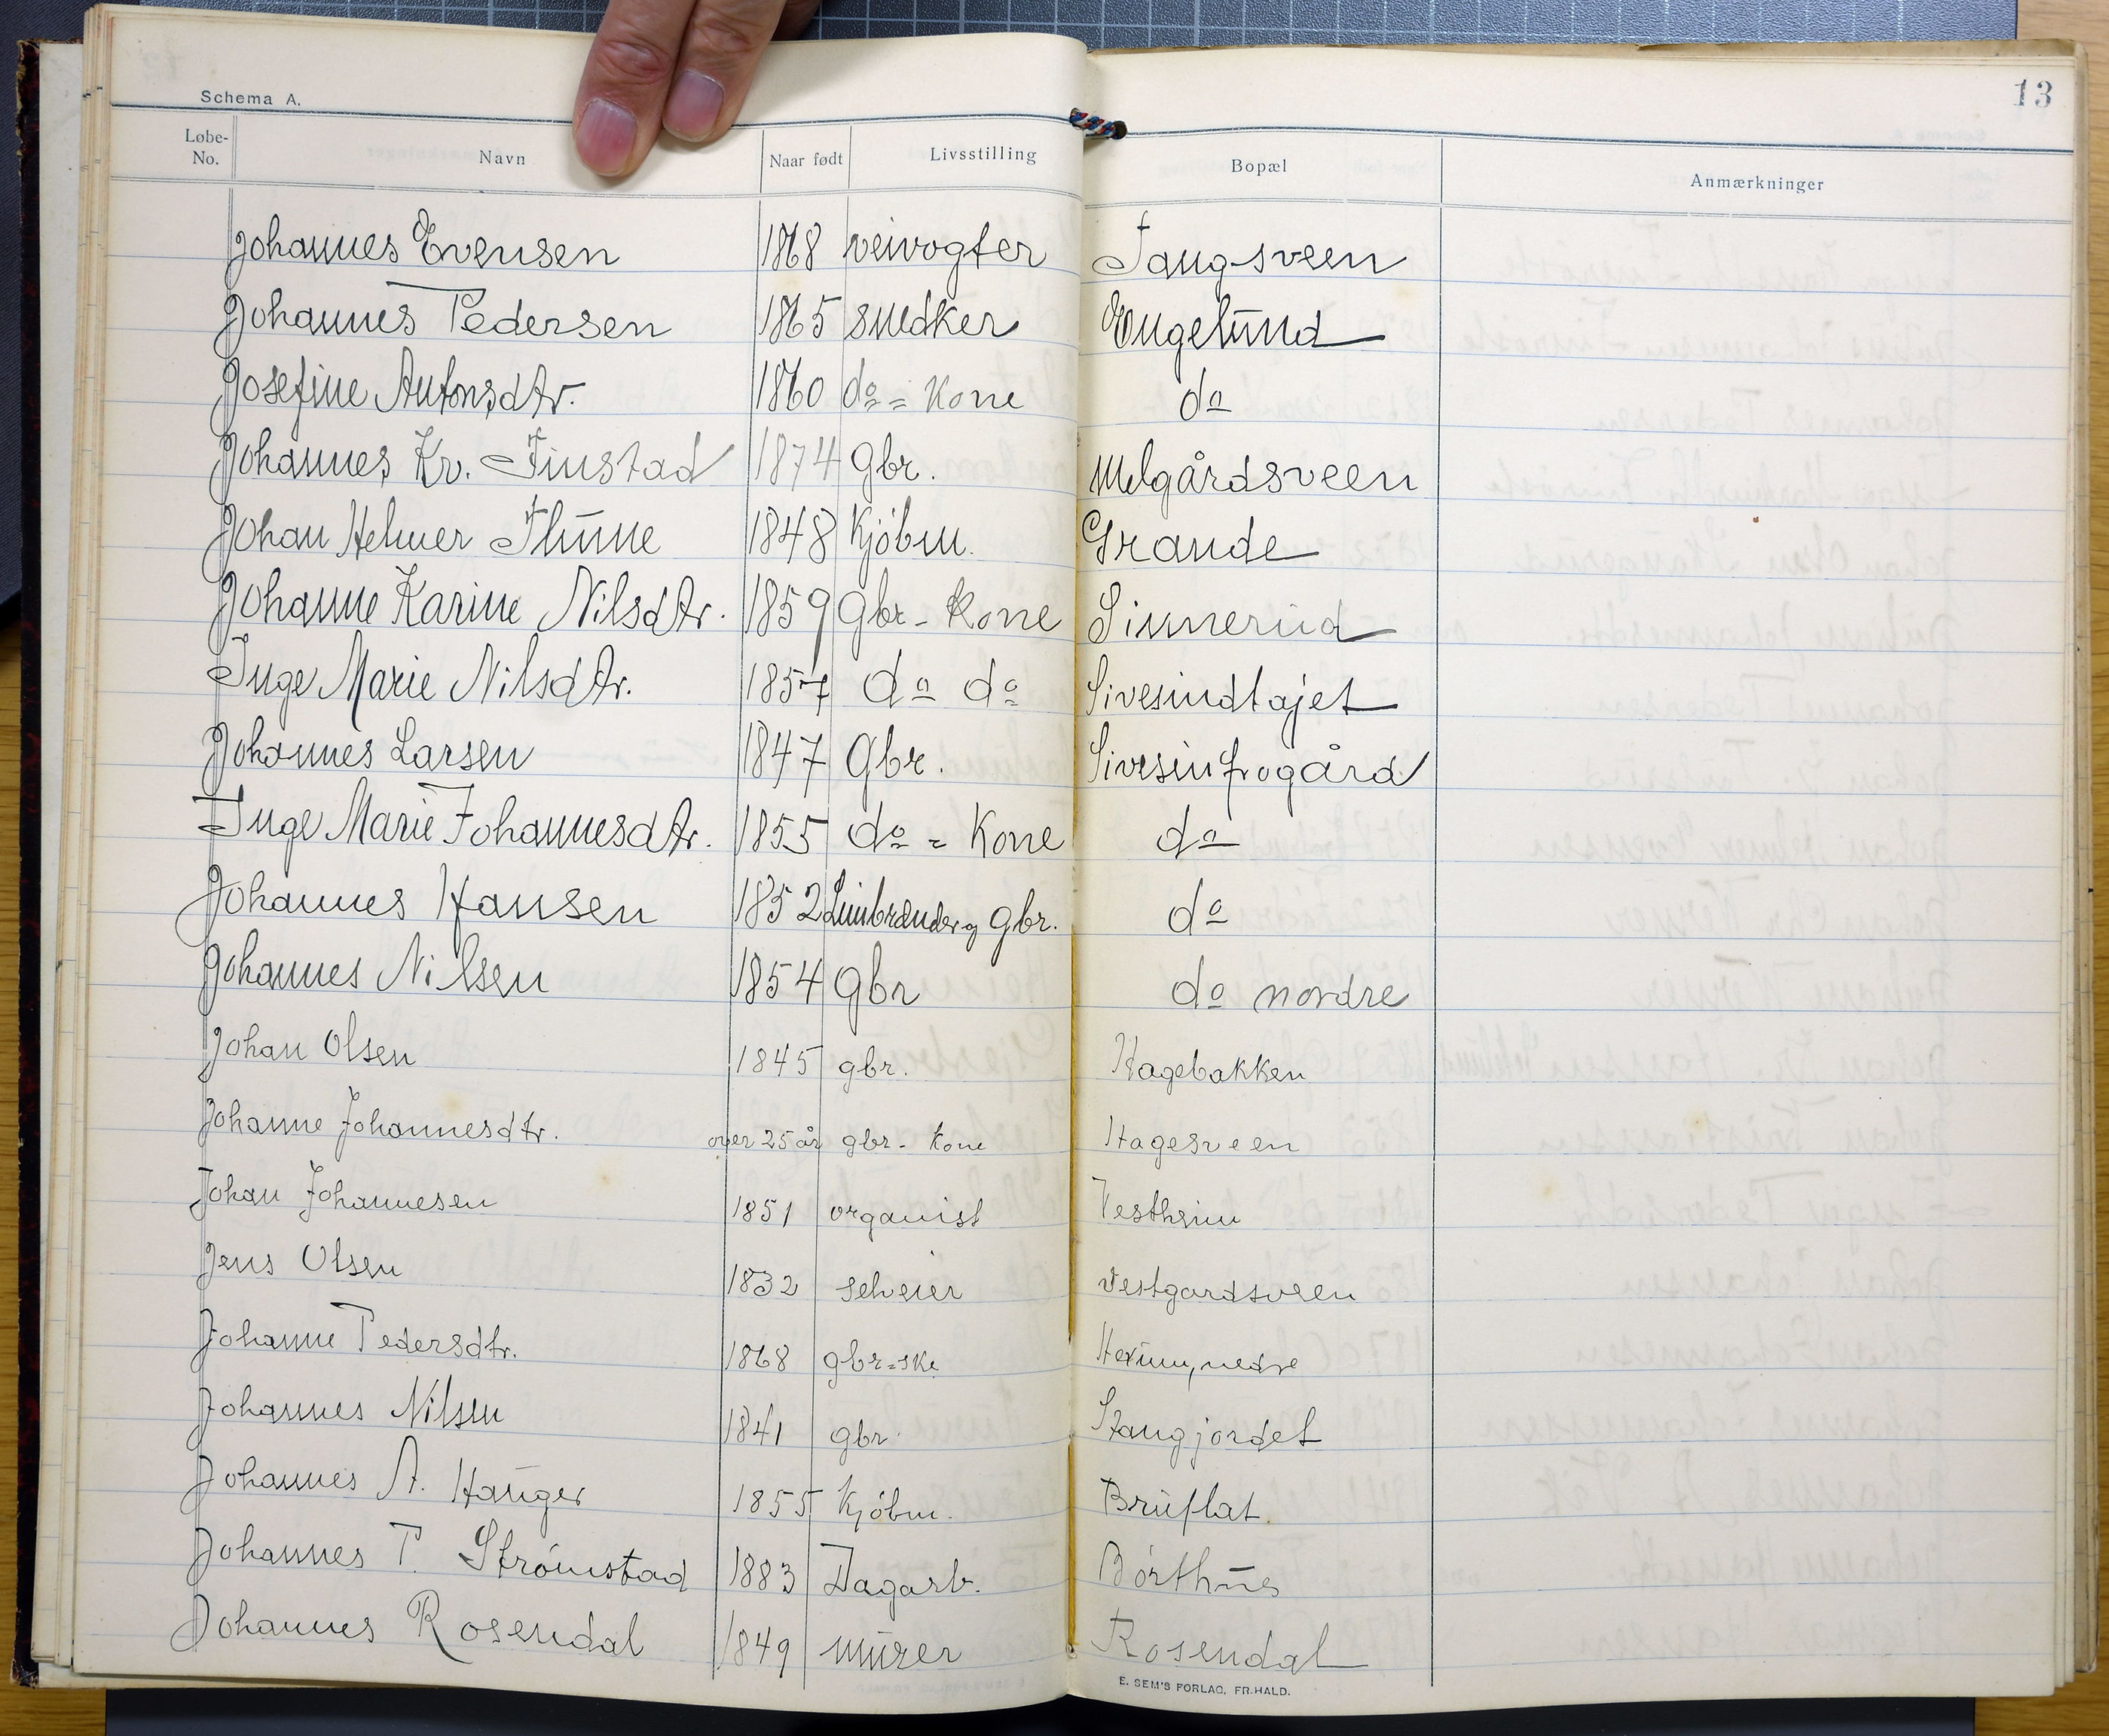 Schema A.
13
Løbe-No. Navn Naar født Livsstilling Bopæl Anmærkninger
Johannes Evensen 1868 veivogter Fangsveen
Johannes Pedersen 1865 snedker Engelund
Josefine Antonsdtr. 1860 do = Kone do
Johannes Kr. Finstad 1874 Gbr. Melgårdsveen
Johan Helmer Thune 1848 Kjöbm. Grande
Johanne Karine Nilsdtr. 1859 Gbr - Kone Sinnerud
Inge Marie Nilsdtr. 1857 do do
Johannes Larsen 1847 Gbr.
Inge Marie Johannesdtr. 1855 do = Kone do
Johannes Hansen 1852 Limbrænder og Gbr. do
Johannes Nilsen 1854 Gbr do nordre
Johan Olsen 1845 gbr. Hagebakken
Johanne Johannesdtr. over 25 år gbr - Kone Hagesveen
Johan Johannesen 1851 organist Vestheim
Jens Olsen 1832 selveier Vestgardsveen
Johanne Pedersdtr. 1868 gbr=ske nedre
Johannes Nilsen 1841 gbr. Haugjordet
Johannes A. Hauger 1855 Kjöbm. Bruflat.
Johannes T. Strömstad 1883 Dagarb. Börthus
Johannes Rosendal 1849 murer Rosendal
E. SEM'S FORLAG, FR.HALD.